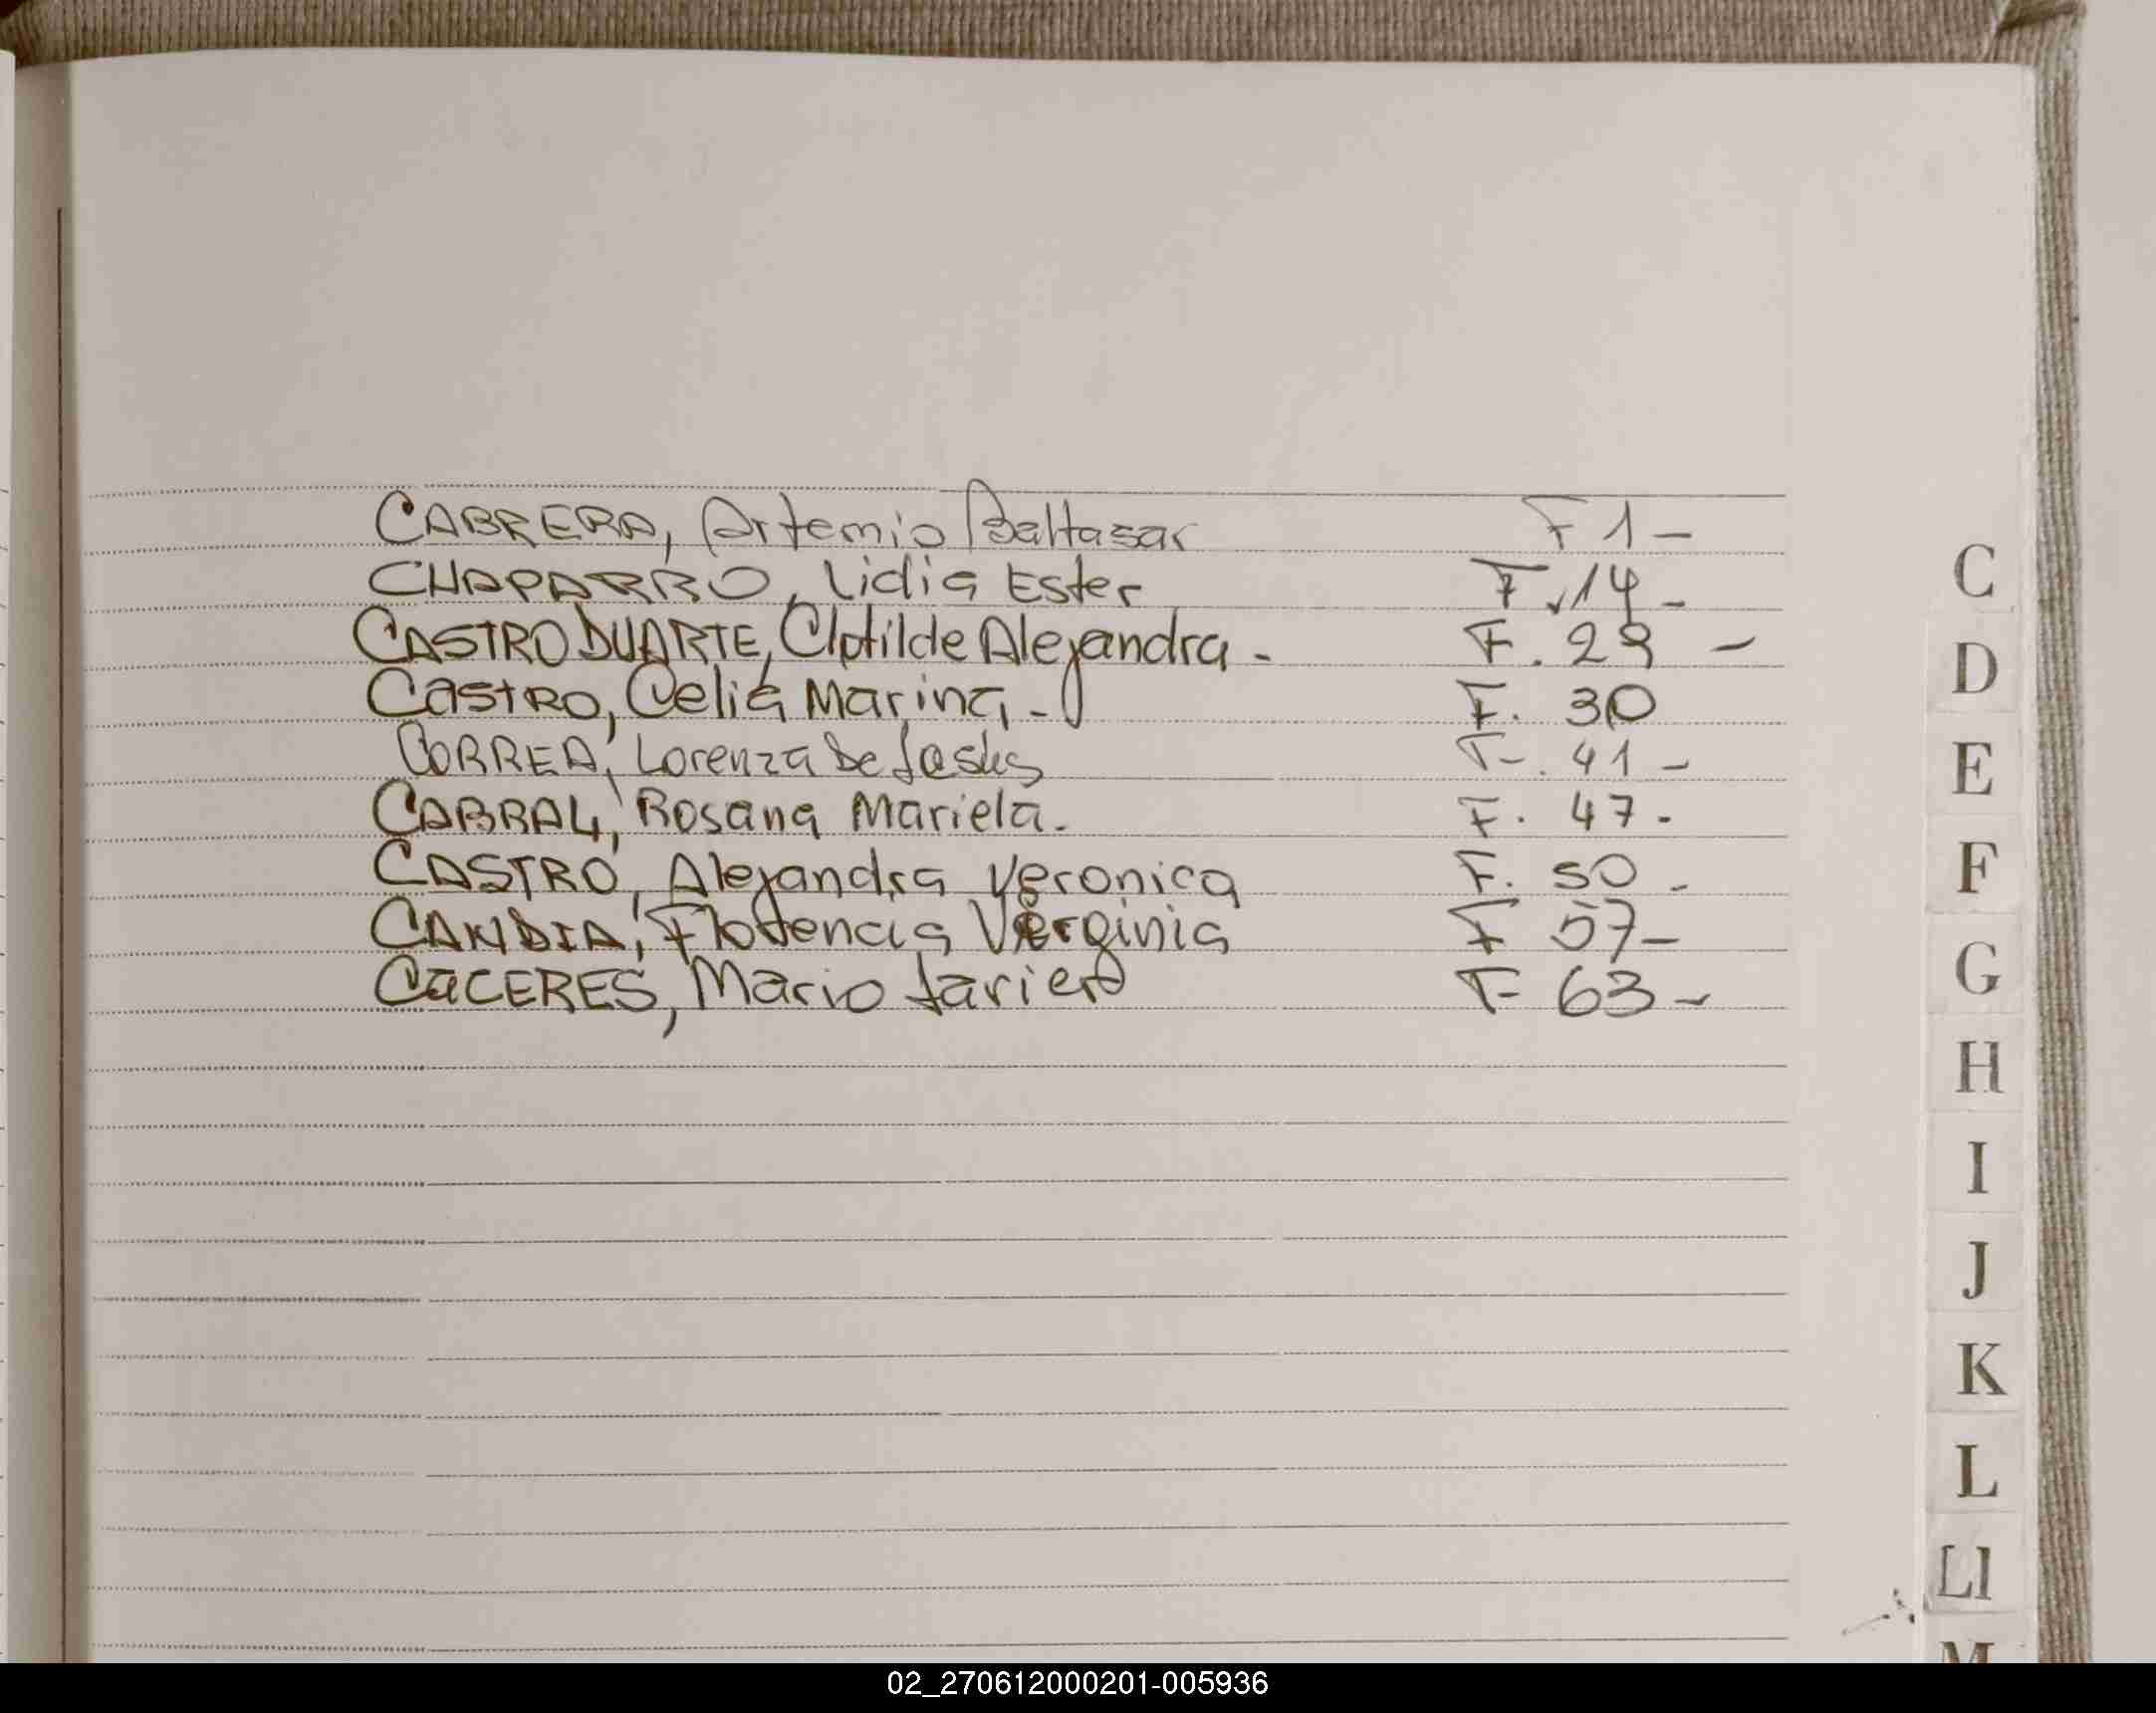 CABRERA, Artemio Baltasar F 1 -
CHAPARRO, Lidia Ester F. 14 -
CASTRO DUARTE, Clotilde Alejandra - F. 29 -
CASTRO, Celia Marina - F. 30
CORREA, Lorenza De Jesus F. 41 -
CABRAL, Rosana Mariela. F. 47 -
CASTRO, Alejandra Veronica F. 50 -
CANDIA, Florencia Virginia F 57 -
CACERES, Mario Javier F 63 -
C
D
E
F
G
H
I
J
K
L
Ll
M
02_270612000201-005936